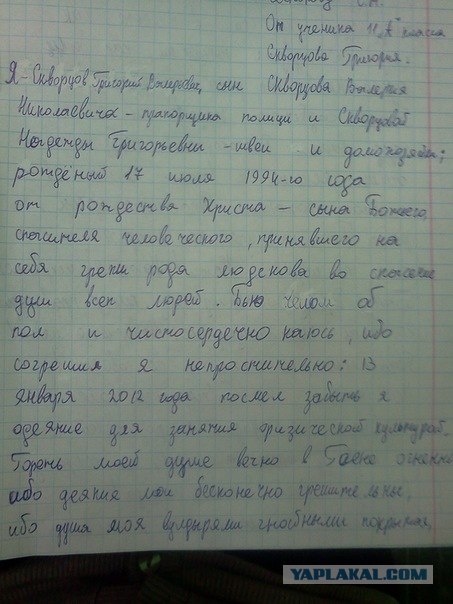 От ученика 11 „А" класса
Скворцова Григория.
Я - Скворцов Григорий Валерьевич, сын Скворцова Валерия
Николаевича - прапорщика полиции и Скворцовой
Надежды Григорьевны - швеи и домохозяйки;
рождёный 17 июля 1994-го года
от рождества Христа - сына Божьего,
спасителя человеческого, принявшего на
себя грехи рода людскова во спасение
душ всех людей. Бью челом об
пол и чистосердечно каюсь, ибо
согрешил я непростительно: 13
января 2012 года посмел забыть я
одеяние для занятия физической культурой.
Гореть моей душе вечно в Гаене огненной
ибо деяния мои бесконечно грешительны,
ибо душа моя вулдырями гнойными покрытая,
YAPLAKAL.COM